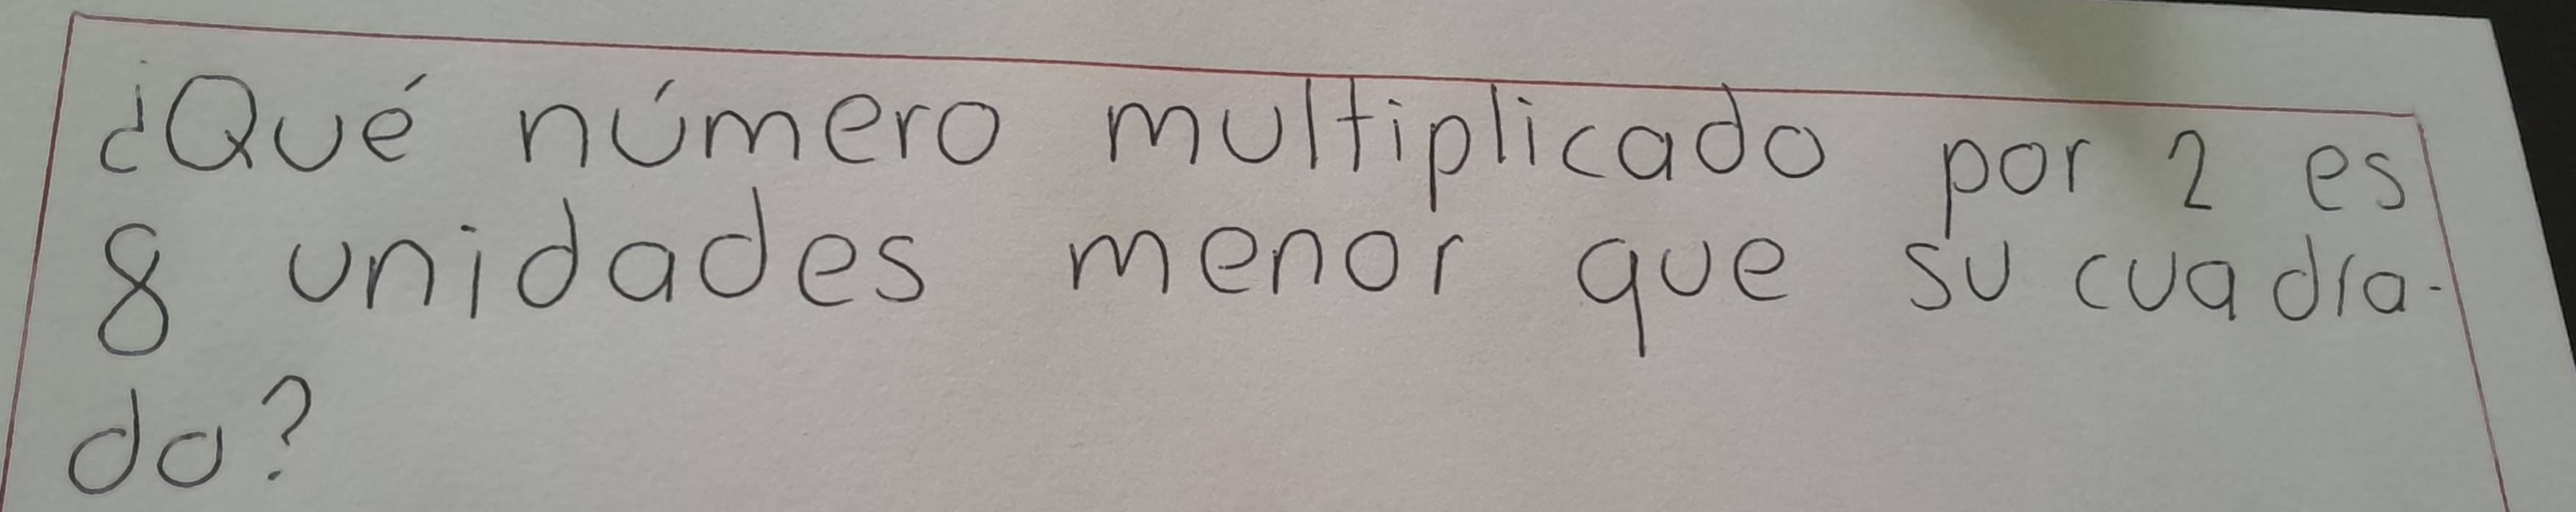 ¿Qué número multiplicado por 2 es
8 unidades menor que su cuadra-
do?